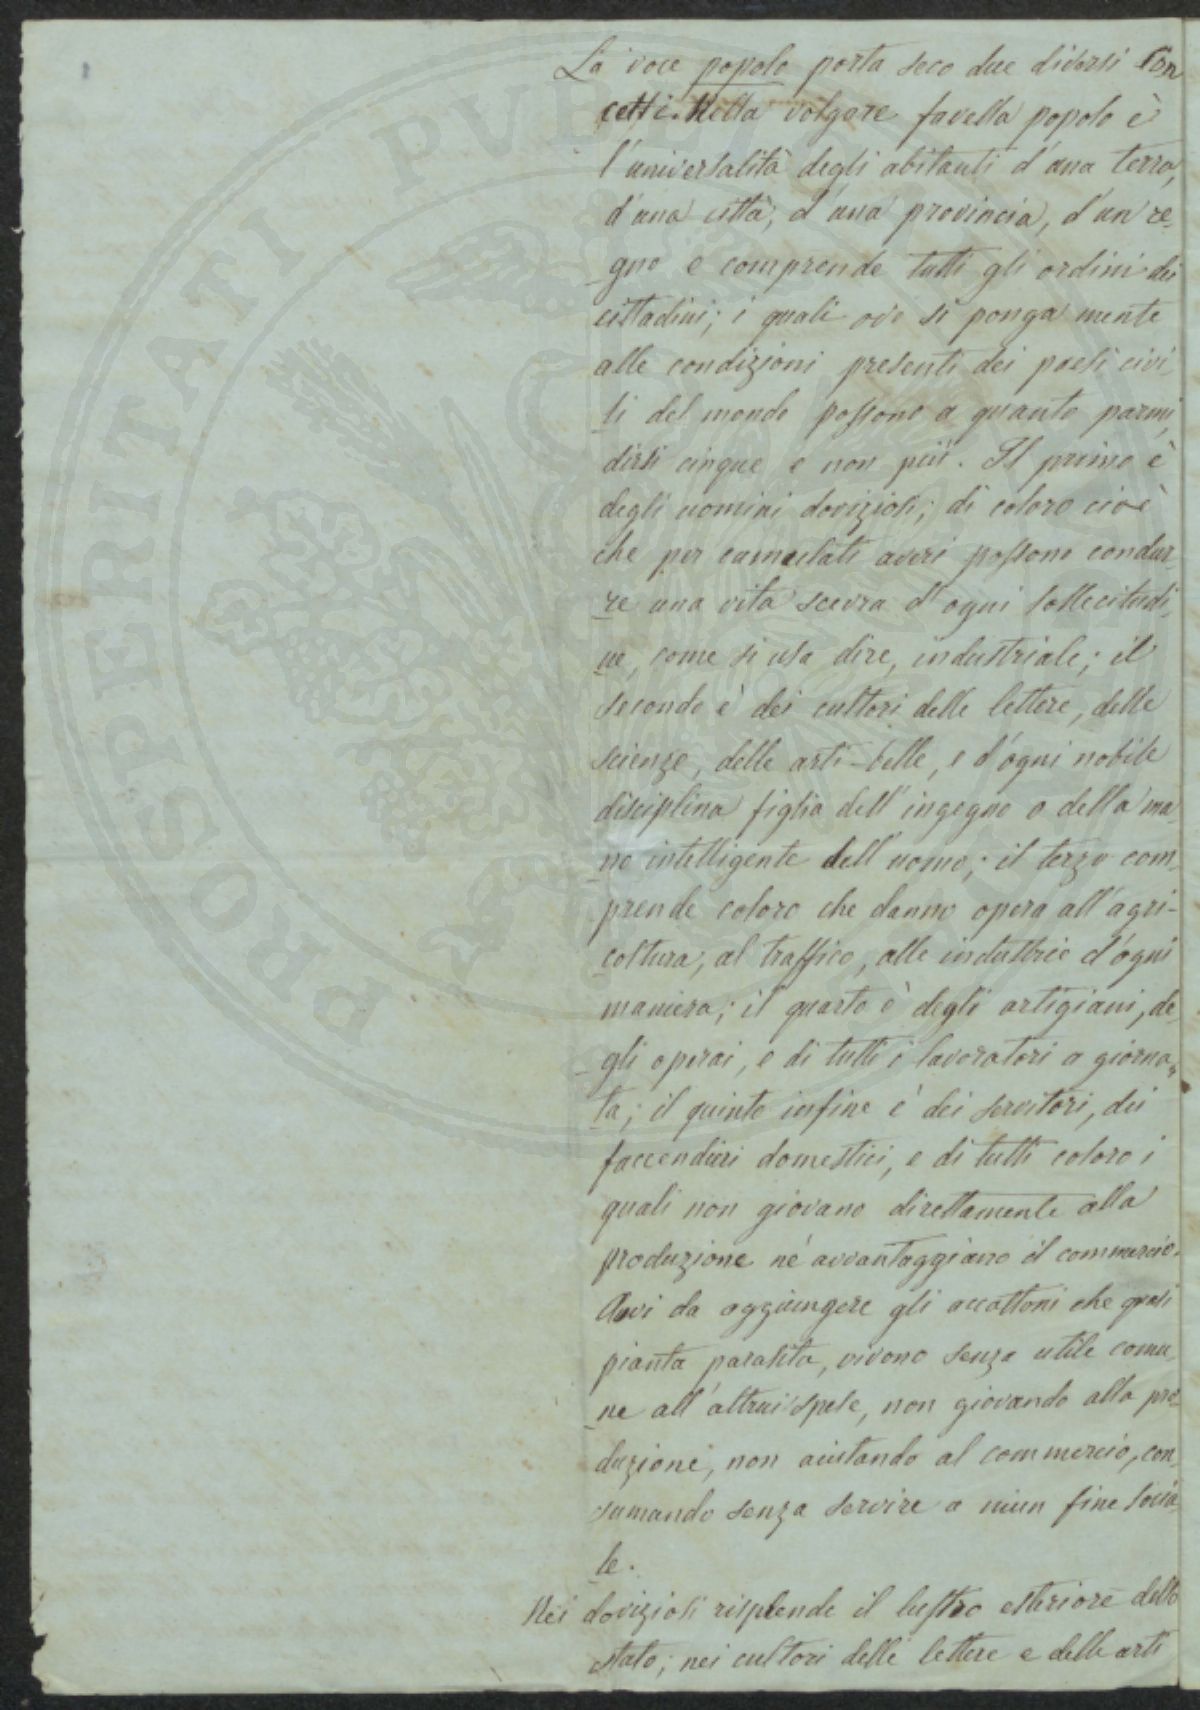 La voce popolo porta seco due diversi con
cetti. Nella volgare favella popolo è
l'universalità degli abitanti d'una terra,
d'una città, d'una provincia, d'un re-
gno e comprende tutti gli ordini dei
cittadini; i quali ove si ponga mente
alle condizioni presenti dei paesi civi
li del mondo possono a quanto parmi,
dirsi cinque e non più. Il primo è
degli uomini doviziosi; di coloro cioè
che per cumulati averi possono condur-
re una vita scevra d'ogni sollecitudi-
ne, come si usa dire, industriale; il
secondo è dei cultori delle lettere, delle
scienze, delle arti-belle, e d'ogni nobile
disciplina figlia dell'ingegno o della ma
no intelligente dell'uomo; il terzo com-
prende coloro che danno opera all'agri-
coltura, al traffico, alle industrie d'ogni
maniera; il quarto è degli artigiani, de-
gli operai, e di tutti i lavoratori a giorna-
ta; il quinto infine è dei servitori, dei
faccendieri domestici, e di tutti coloro i
quali non giovano direttamente alla
produzione nè avvantaggiano il commercio.
Avvi da aggiungere gli accattoni che quasi
pianta parasita, vivono senza utile comu-
ne all'altrui spese, non giovando alla pro-
duzione, non aiutando al commercio, con-
sumando senza servire a niun fine socia-
le.
Nei doviziosi risplende il lustro esteriore dello
stato; nei cultori delle lettere e delle arti
PROSPERITATI PVBLICAE